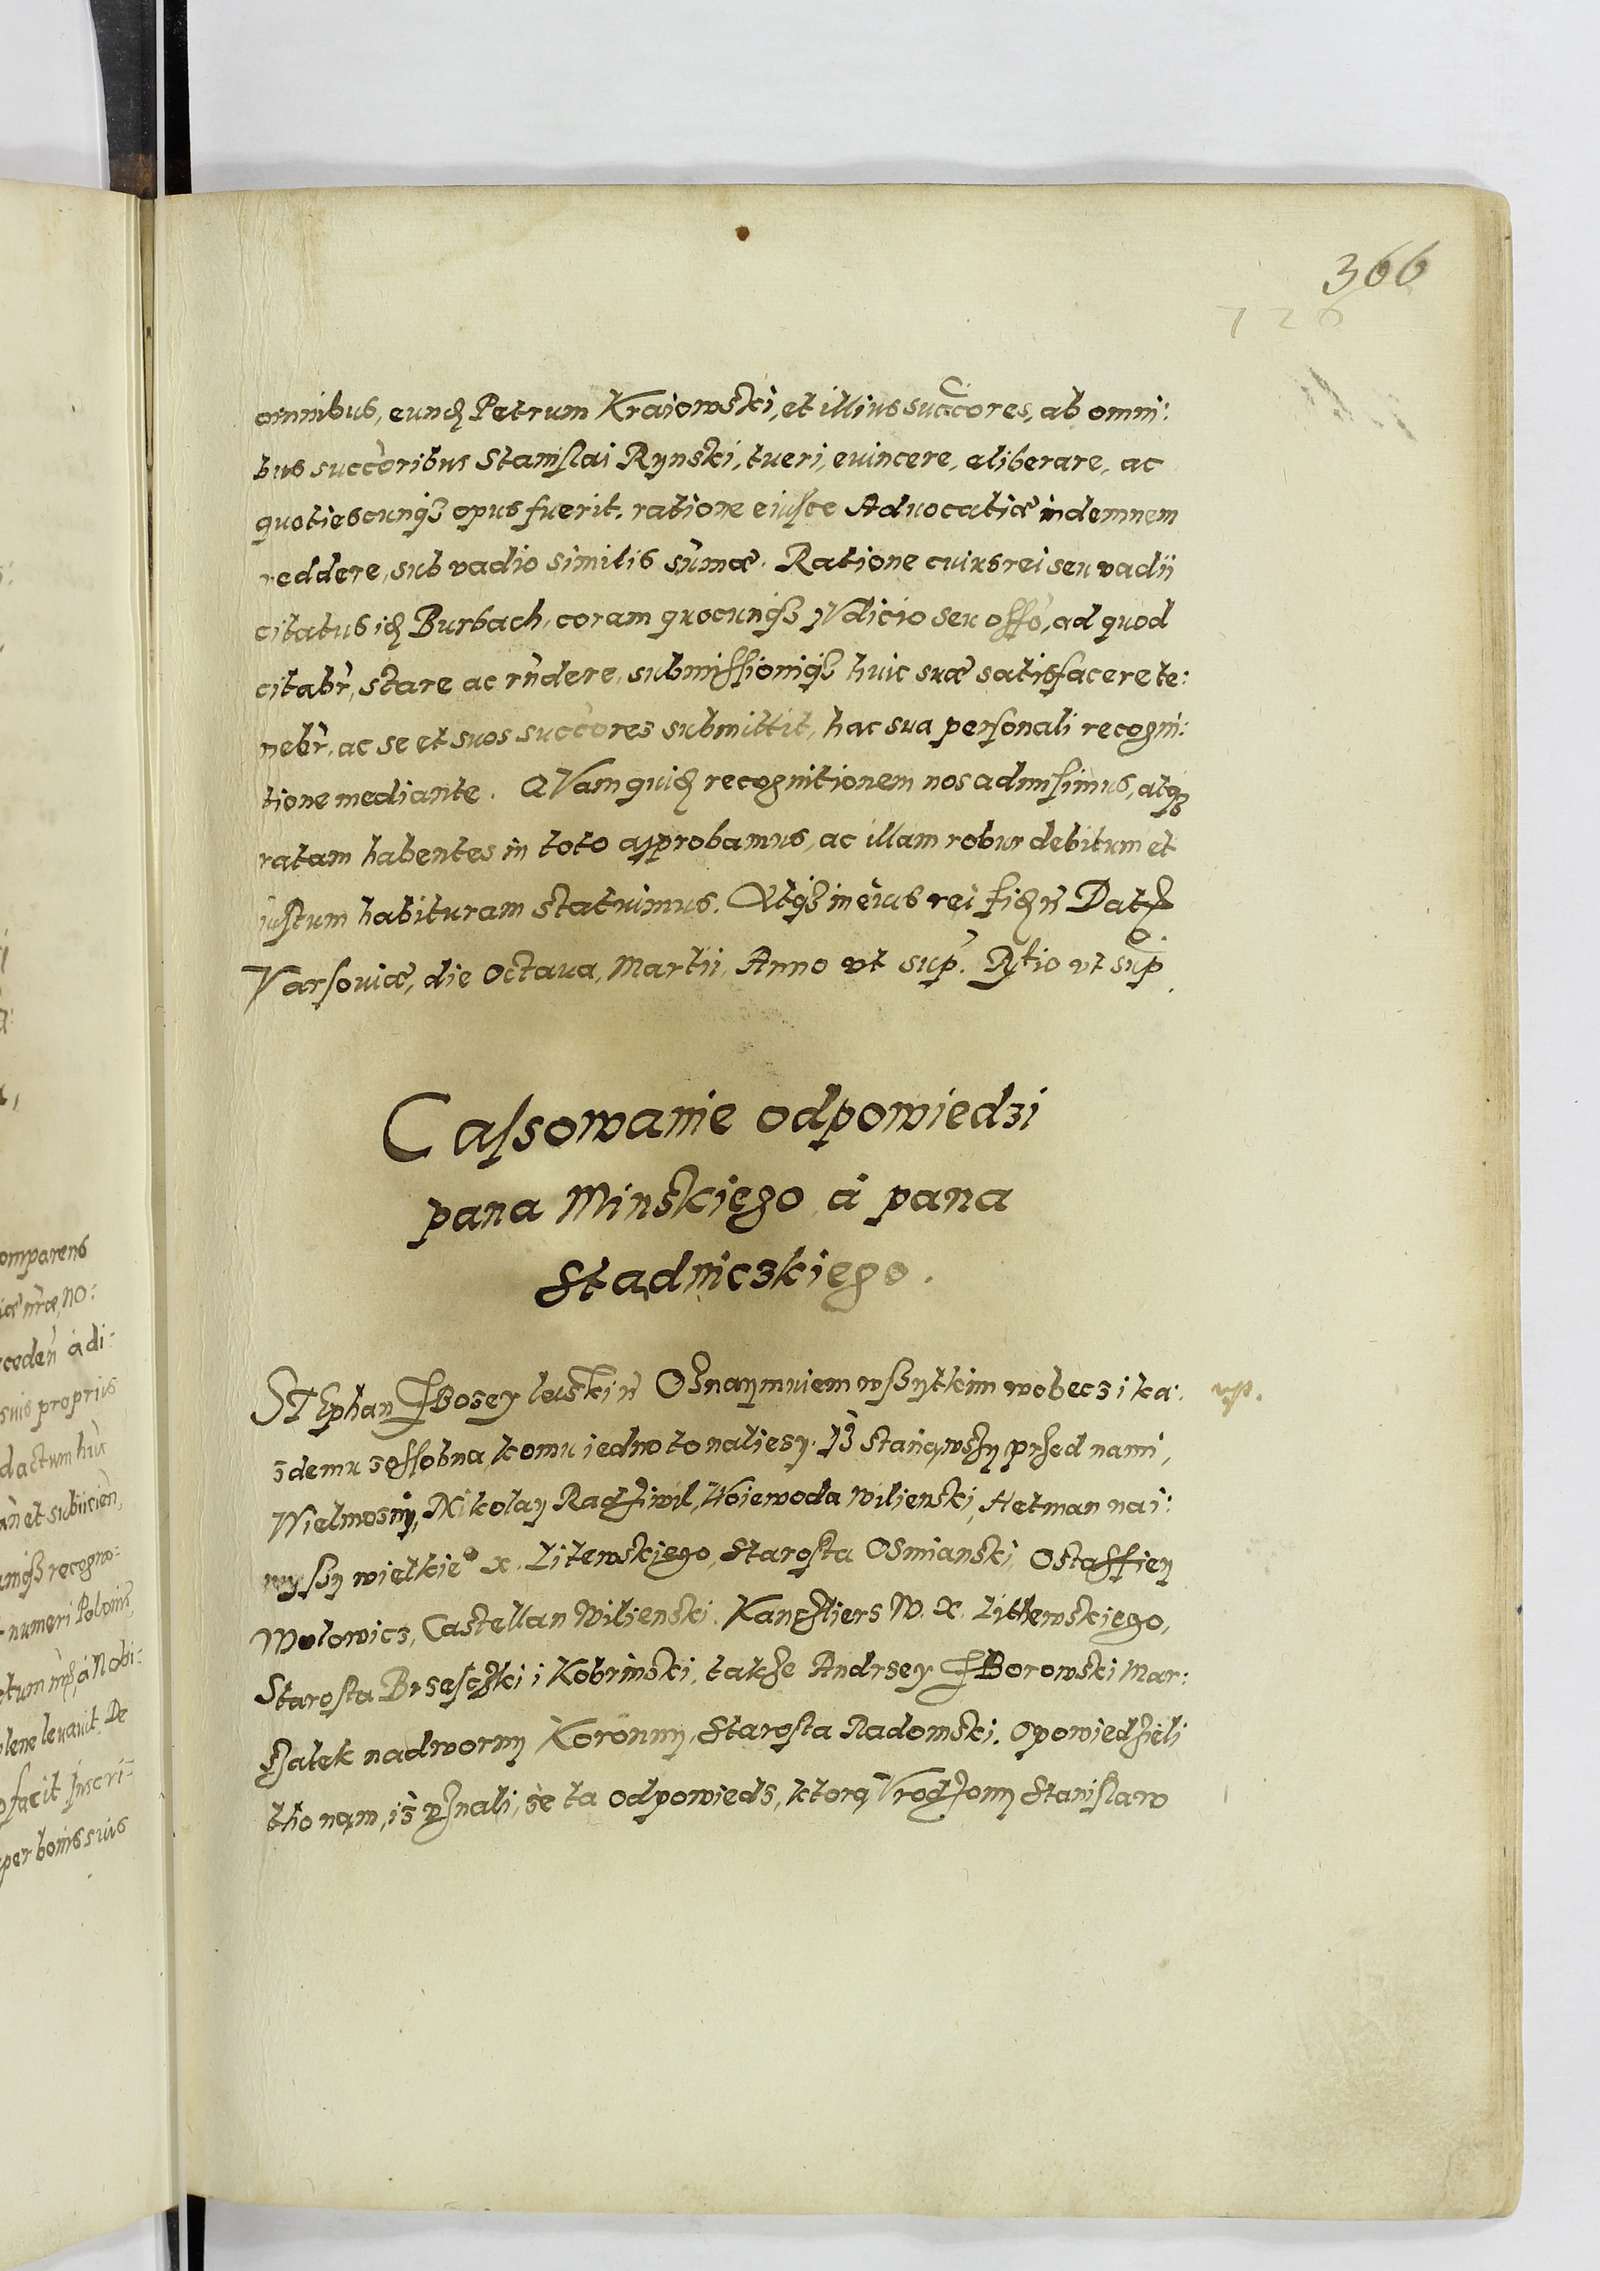 366
726
omnibus, eundȝ Petrum Kraiowski, et illius succores, ab omni:
bus succoribus Stanislai Rynski, tueri, euincere, aliberare, ac
quotiescunqȝ opus fuerit, ratione eiusce Aduocatiæ indemnem
reddere, sub vadio similis sum̃æ. Ratione cuius rei seu vadii
citatus idȝ Burbach, coram quocunqȝ Vdicio seu offo, ad quod
citabr̃, stare ac rñdere, submissioniqȝ huic suæ satisfacere te:
nebr̃, ac se et suos succores submittit, hac sua personali recogni:
tione mediante. QVam quidȝ recognitionem nos admisimus, atqȝ
ratam habentes in toto approbamus, ac illam robur debitum et
iustum habituram statuimus. In eius rei fidȝ ñ Datȝ
Varsouiæ, die octaua, Martii, Anno vt sup. Rltio vt sup.
Cassowanie odpowiedzi
pana Minskiego á pana
Stadniczkiego.
STEphan Bozey laski ñ Oznaymuiem wszytkim wobecz i ka: vp.
zdemu zossobna, komu iedno to naliezy. Iż stanąwszy przed nami,
Wielmozny, Mikolay Radziwil, Woiewoda Wilienski, Hetman nai:
wyszy wielkieo x. Litewskiego, Starosta Osmianski, Ostaffiey
Wolowicz, Castellan Wilienski. Kanczliers W. X. Lithewskiego,
Starosta Brzesczki i Kobrinski, takze Andrzey Zborowski Mar:
szalek nadworny Koronny, Starosta Radomski. Opowiedzieli
tho nąm, iż vznali, że ta odpowieds, ktorą Vrodzony Stanislaw